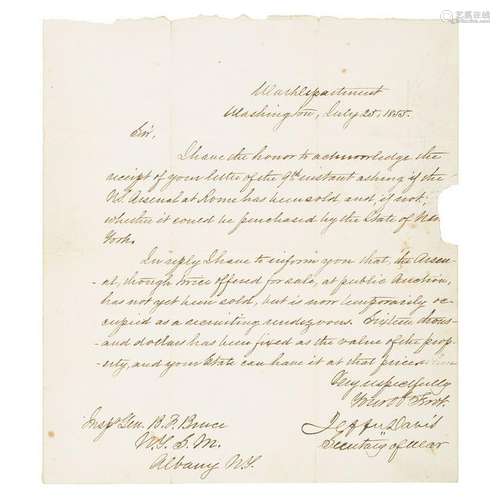 War Department
Washington, July 25, 1855.
Sir,
I have the honor to acknowledge the
receipt of your letter of the 9th instant asking if the
U.S. Arsenal at Rome has been sold and, if not,
whether it could be purchased by the State of New
York.
In reply I have to inform you that, the Arsen-
-al, though twice offered for sale, at public Auction,
has not yet been sold, but is now temporarily oc-
cupied as a recruiting rendezvous. Sixteen thous-
-and dollars has been fixed as the value of the prop-
-erty, and your State can have it at that price.
Very respectfully
Your Obt Servt.
Jeffn Davis
Secretary of War
Insp. Gen. B. F. Bruce
N.Y. S. M.
Albany N.Y.